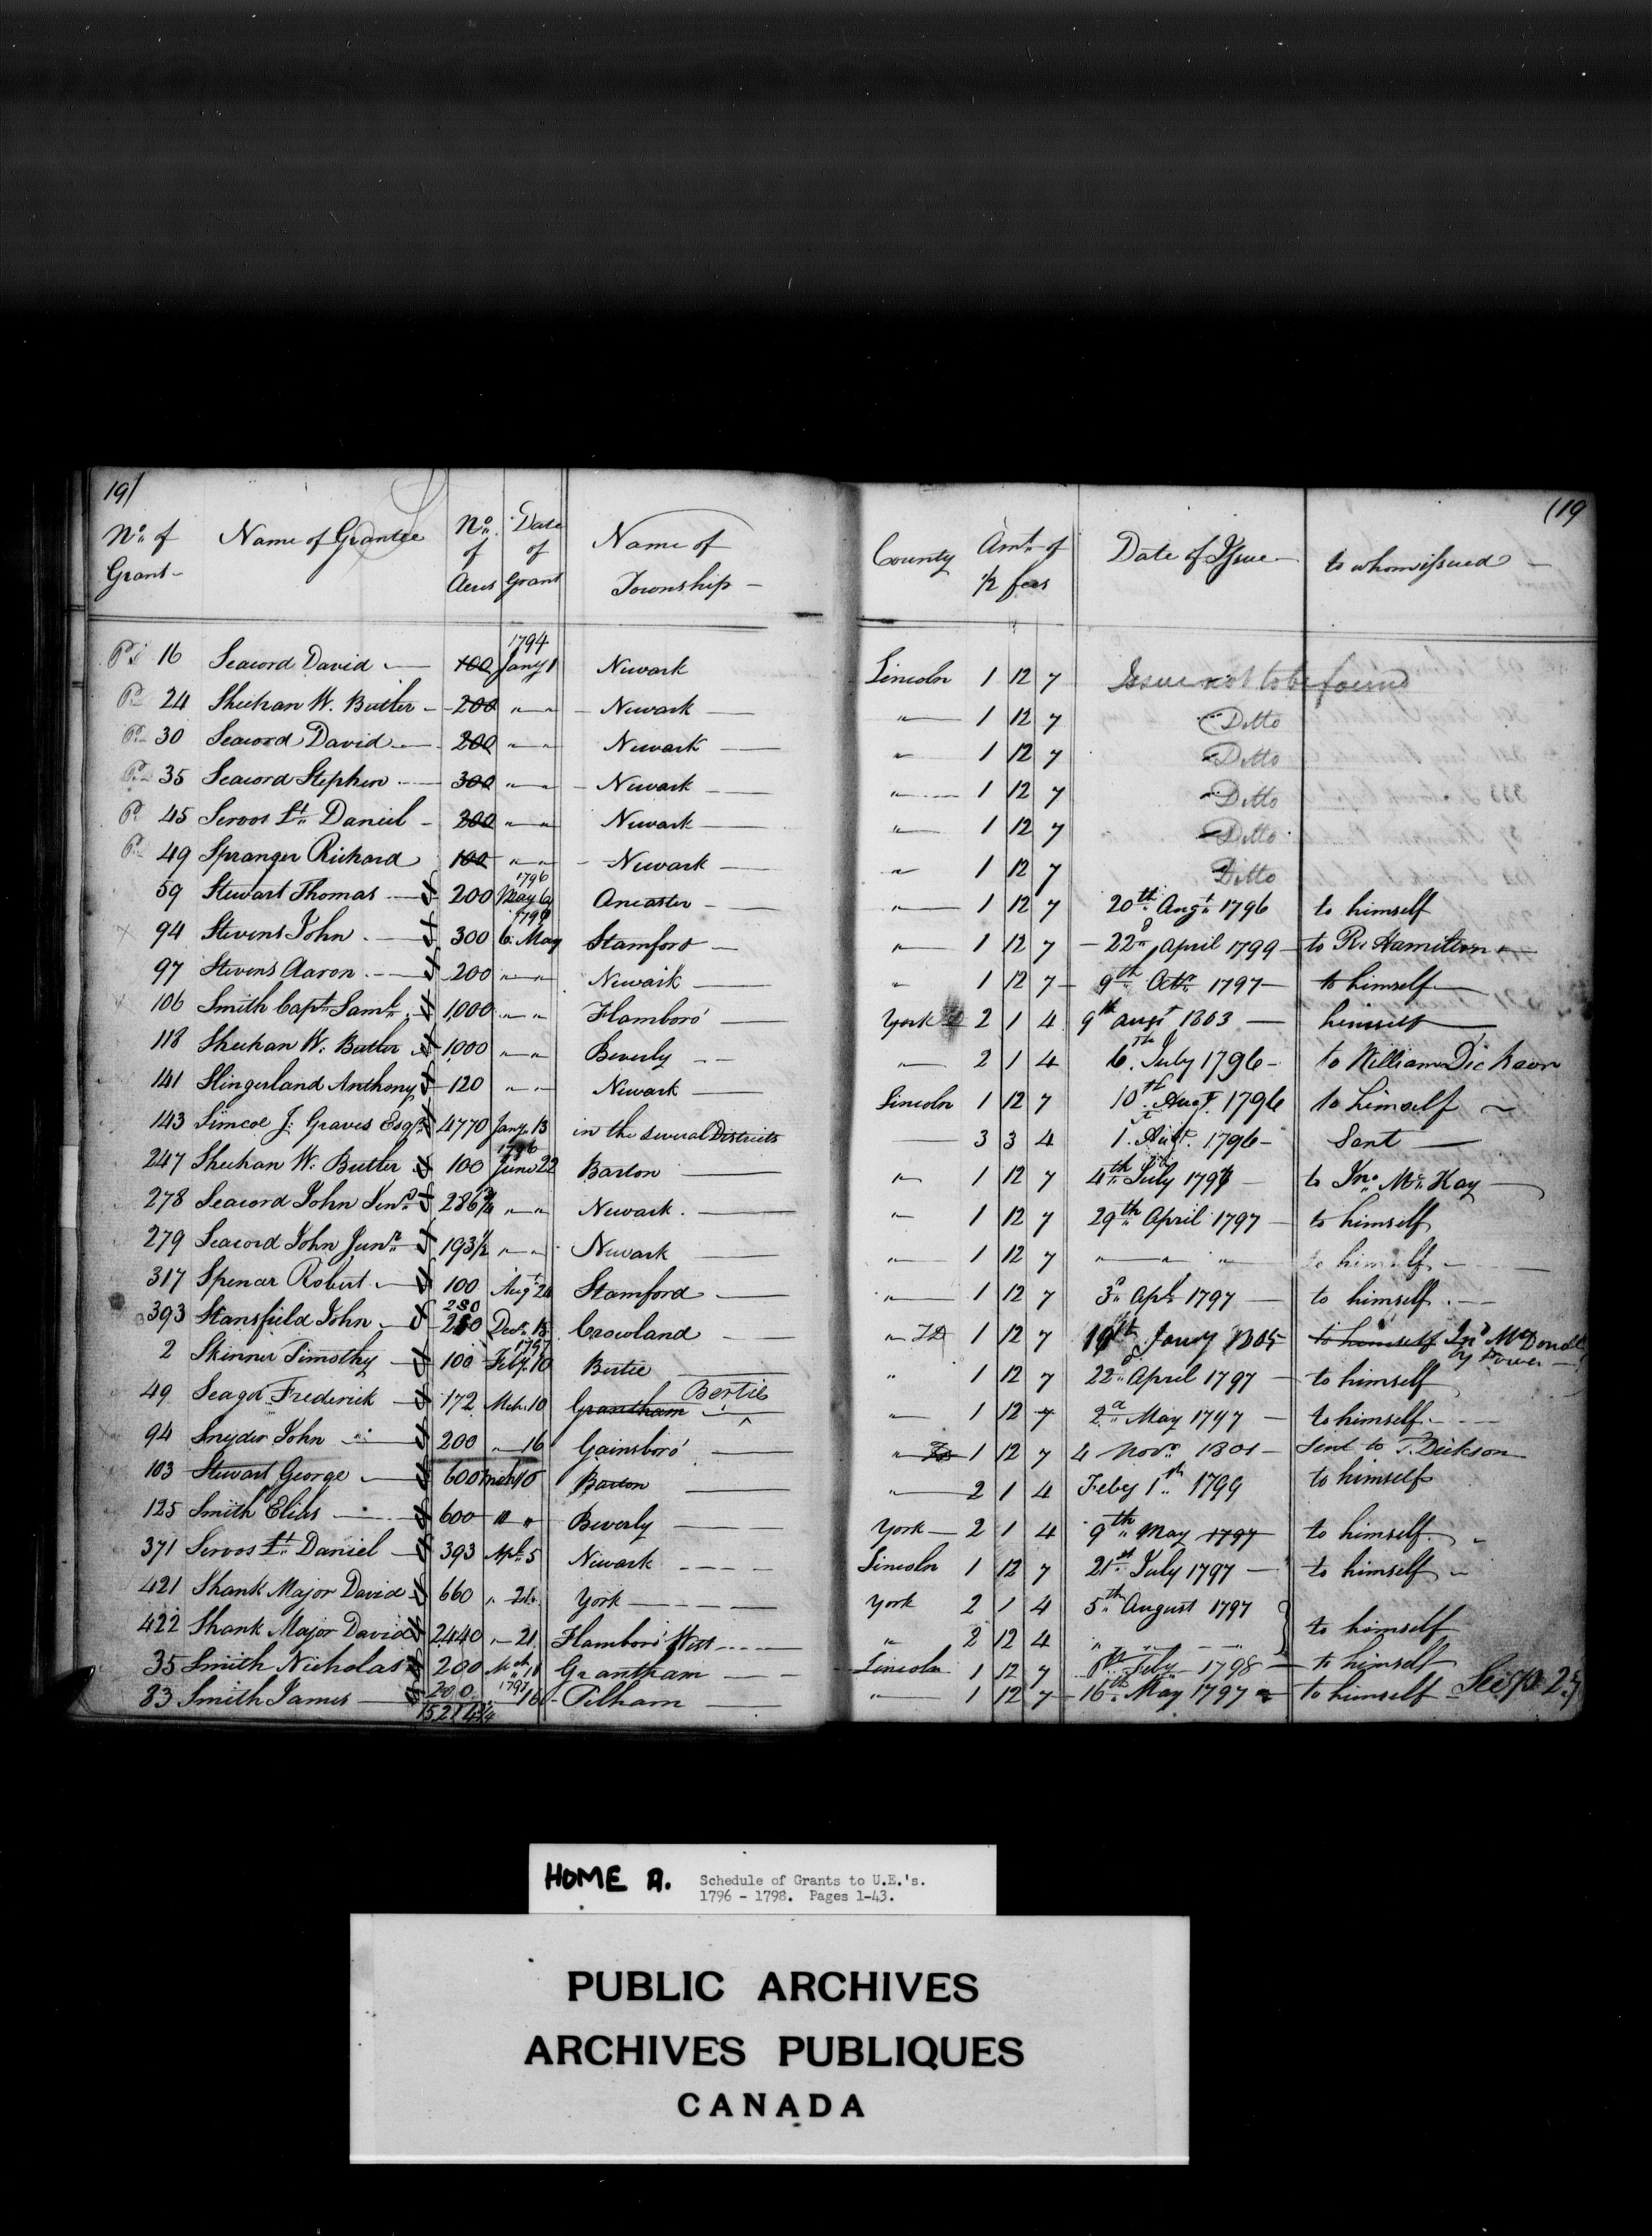 19/
(19
No. of Grant - Name of Grantee No. of Acres Date of Grant Name of Township - County Amt. of 1/2 fees Date of Issue to whom issued -
1794
P. 16 Seacord David 100 Jany 1 Newark Lincoln 1 12 7 Issue not to be found
P. 24 Sheehan W. Butler 200 " " Newark " 1 12 7 Ditto
P. 30 Seacord David 200 " " Newark " 1 12 7 Ditto
P. 35 Seacord Stephen 300 " " Newark " 1 12 7 Ditto
P. 45 Servos Lt. Daniel 200 " " Newark " 1 12 7 Ditto
P. 49 Spranger Richard 100 " " Newark " 1 12 7 Ditto
1796
59 Stewart Thomas 200 May 6 Ancaster " 1 12 7 20th Augt 1796 to himself
94 Stevens John 300 6. May Stamford " 1 12 7 22d April 1799 to R. Hamilton
97 Stevens Aaron 200 " " Newark " 1 12 7 9th Octr 1797 to himself
106 Smith Capt. Saml. 1,000 " " Flamboro' York 2 1 4 9th augt 1803 himself
118 Sheehan W. Butler 1000 " " Beverly " 2 1 4 6th July 1796 to William Dickson
141 Slingerland Anthony 120 " " Newark Lincoln 1 12 7 10th Augt. 1796 to himself
143 Simcoe J: Graves Esqr. 4770 Jany. 13 in the several Districts 3 3 4 1. Augt. 1796 Sent
1796
247 Sheehan W. Butler 100 June 22 Barton " 1 12 7 4th July 1797 to Jno. McKay
278 Seacord John Senr. 286 3/4 " " Newark " 1 12 7 29th April 1797 to himself
279 Seacord John Junr. 193 1/2 " " Newark " 1 12 7 " " " to himself
317 Spencer Robert 100 Augt 24 Stamford " 1 12 7 3d Apl. 1797 to himself
280
393 Stansfield John 280 Decr. 15 Crowland " 1 12 7 Jany 1805 to himself Jno McDonell
by Power
1797
2 Skinner Timothy 100 Feby. 10 Bertie " 1 12 7 22d April 1797 to himself
Bertie
49 Seager Frederick 172 Mch. 10 Grantham " 1 12 7 2d May 1797 to himself
94 Snyder John 200 " 16 Gainsboro' " 1 12 7 4 Novr 1801 Sent to T. Dickson
103 Stewart George 600 Mch 10 Barton " 2 1 4 Feby 1st 1799 to himself
125 Smith Elias 600 " " Beverly York 2 1 4 9th May 1797 to himself
371 Servos Lt. Daniel 393 Apl. 5 Newark Lincoln 1 12 7 21st July 1797 to himself
421 Shank Major David 660 " 21. York York 2 1 4 5th August 1797
422 Shank Major David 2440 " 21. Flamboro' West " 2 12 4 " " " to himself
35 Smith Nicholas 200 Mch 11 Grantham Lincoln 1 12 7 July 1798 to himself
1797
83 Smith James 200 16 Pelham " 1 12 7 16th May 1797 to himself
15214 3/4
HOME A.
Schedule of Grants to U.E.'s.
1796 - 1798. Pages 1-43.
PUBLIC ARCHIVES
ARCHIVES PUBLIQUES
CANADA